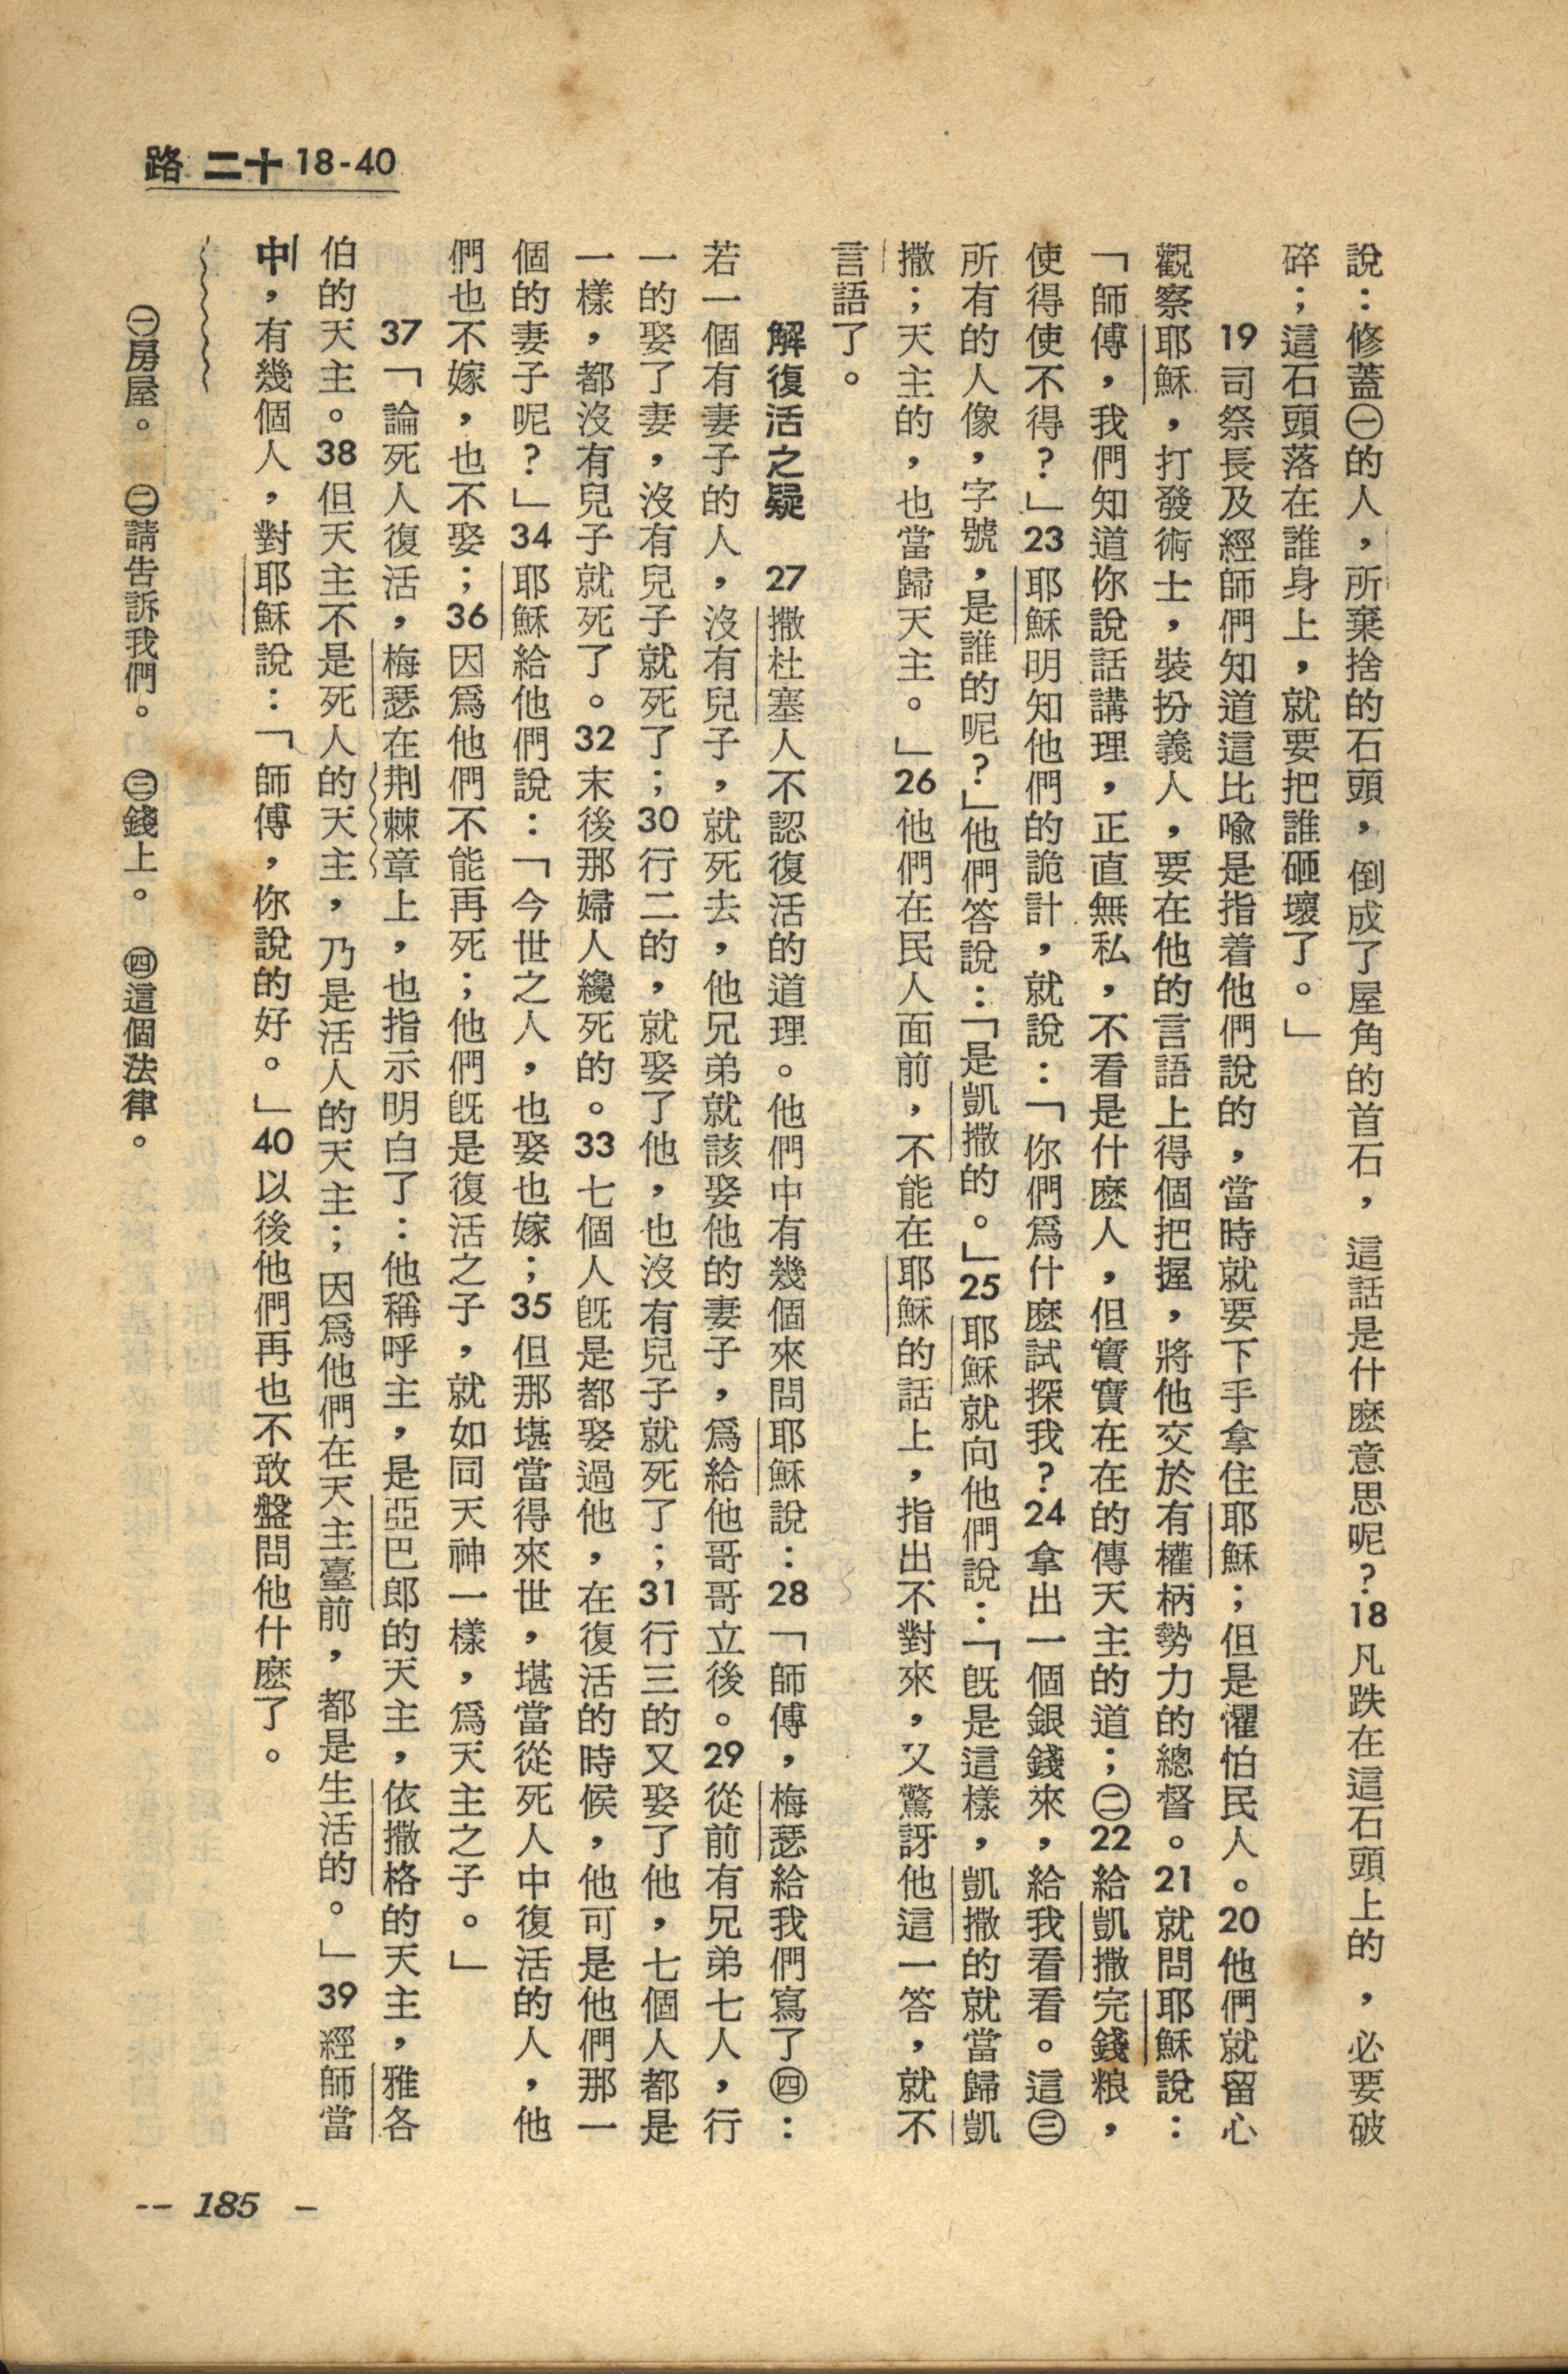 路 二十 18-40
說：修蓋㊀的人，所棄捨的石頭，倒成了屋角的首石，這話是什麽意思呢？18 凡跌在這石頭上的，必要破
碎；這石頭落在誰身上，就要把誰砸壞了。」
19 司祭長及經師們知道這比喩是指着他們說的，當時就要下手拿住耶穌；但是懼怕民人。20 他們就留心
觀察耶穌，打發術士，裝扮義人，要在他的言語上得個把握，將他交於有權柄勢力的總督。21 就問耶穌說：
「師傅，我們知道你說話講理，正直無私，不看是什麽人，但實實在在的傳天主的道；㊁22 給凱撒完錢粮，
使得使不得？」23 耶穌明知他們的詭計，就說：「你們爲什麽試探我？24 拿出一個銀錢來，給我看看。這㊂
所有的人像，字號，是誰的呢？」他們答說：「是凱撒的。」25 耶穌就向他們說：「旣是這樣，凱撒的就當歸凱
撒；天主的，也當歸天主。」26 他們在民人面前，不能在耶穌的話上，指出不對來，又驚訝他這一答，就不
言語了。
解復活之疑　27 撒杜塞人不認復活的道理。他們中有幾個來問耶穌說：28「師傅，梅瑟給我們寫了㊃：
若一個有妻子的人，沒有兒子，就死去，他兄弟就該娶他的妻子，爲給他哥哥立後。29 從前有兄弟七人，行
一的娶了妻，沒有兒子就死了；30 行二的，就娶了他，也沒有兒子就死了；31 行三的又娶了他，七個人都是
一樣，都沒有兒子就死了。32 末後那婦人纔死的。33 七個人旣是都娶過他，在復活的時候，他可是他們那一
個的妻子呢？」34 耶穌給他們說：「今世之人，也娶也嫁；35 但那堪當得來世，堪當從死人中復活的人，他
們也不嫁，也不娶；36 因爲他們不能再死；他們旣是復活之子，就如同天神一樣，爲天主之子。」
37「論死人復活，梅瑟在荆棘章上，也指示明白了：他稱呼主，是亞巴郎的天主，依撒格的天主，雅各
伯的天主。38 但天主不是死人的天主，乃是活人的天主；因爲他們在天主臺前，都是生活的。」39 經師當
中，有幾個人，對耶穌說：「師傅，你說的好。」40 以後他們再也不敢盤問他什麽了。
㊀房屋。　㊁請告訴我們。　㊂錢上。　㊃這個法律。
-- 185 -